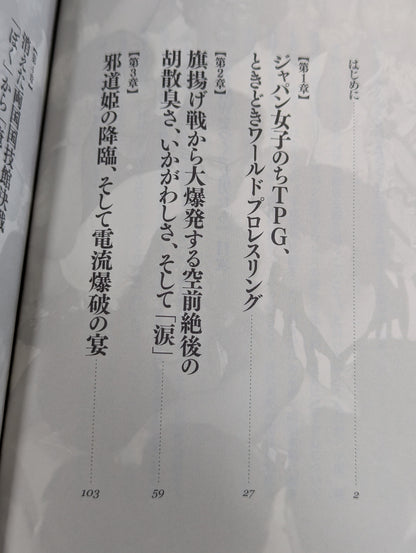 はじめに
2
【第1章】
ジャパン女子のちTPG、
ときどきワールドプロレスリング
27
【第2章】
旗揚げ戦から大爆発する空前絶後の
胡散臭さ、いかがわしさ、そして「涙」
59
【第3章】
邪道姫の降臨、そして電流爆破の宴
103
消えた両国国技館決戦